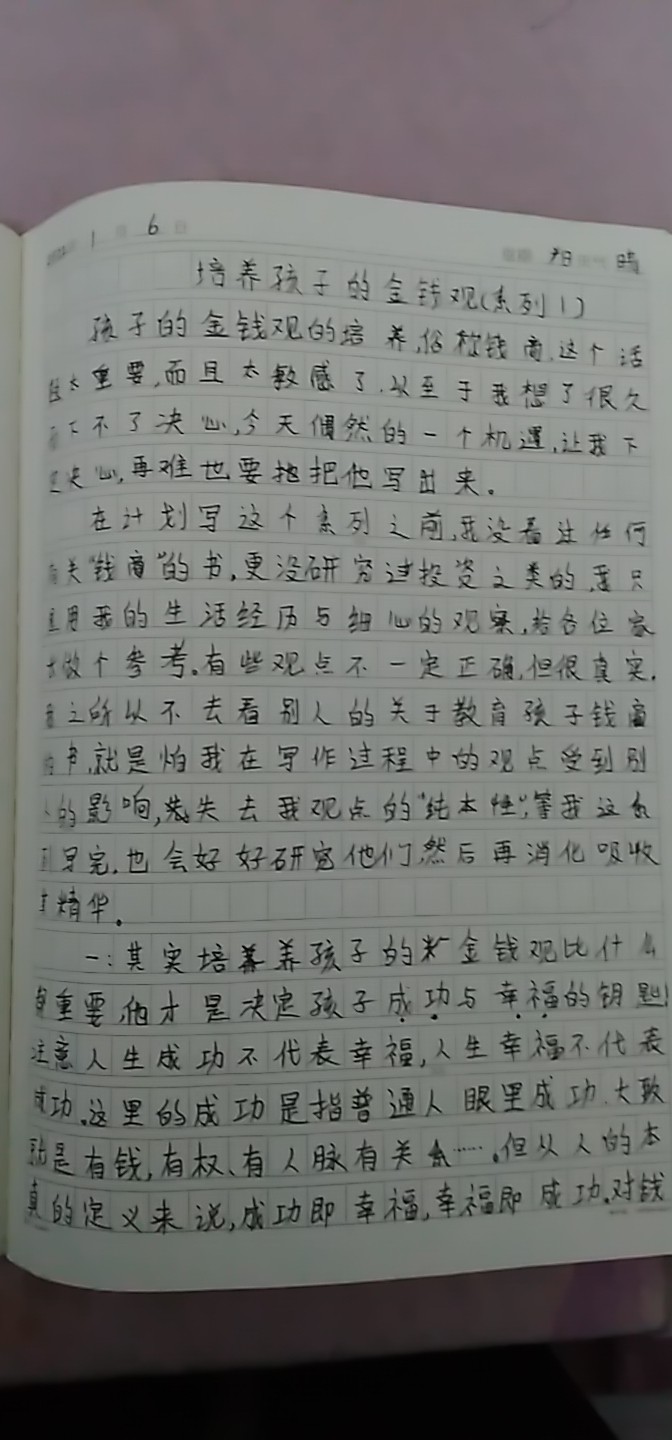 1月6日 星期 日 天气 晴
培养孩子的金钱观(系列1)
孩子的金钱观的培养,俗称钱商,这个话
太重要,而且太敏感了.以至于我想了很久
下不了决心,今天偶然的一个机遇,让我下
决心,再难也要把他写出来。
在计划写这个系列之前,我没看过任何
有关"钱商"的书,更没研究过投资之类的,我只
是用我的生活经历与细心的观察,给各位家
长做个参考。有些观点不一定正确,但很真实.
我之所以不去看别人的关于教育孩子钱商
的书,就是怕我在写作过程中的观点受到别
人的影响,失去我观点的"纯本性",等我这系
列写完,也会好好研究他们,然后再消化吸收
其精华。
一:其实培养孩子的金钱观比什么
重要,他才是决定孩子成功与幸福的钥匙!
注意人生成功不代表幸福,人生幸福不代表
成功.这里的成功是指普通人眼里成功.大致
就是有钱,有权、有人脉有关系……。但从人的本
真的定义来说,成功即幸福,幸福即成功.对钱